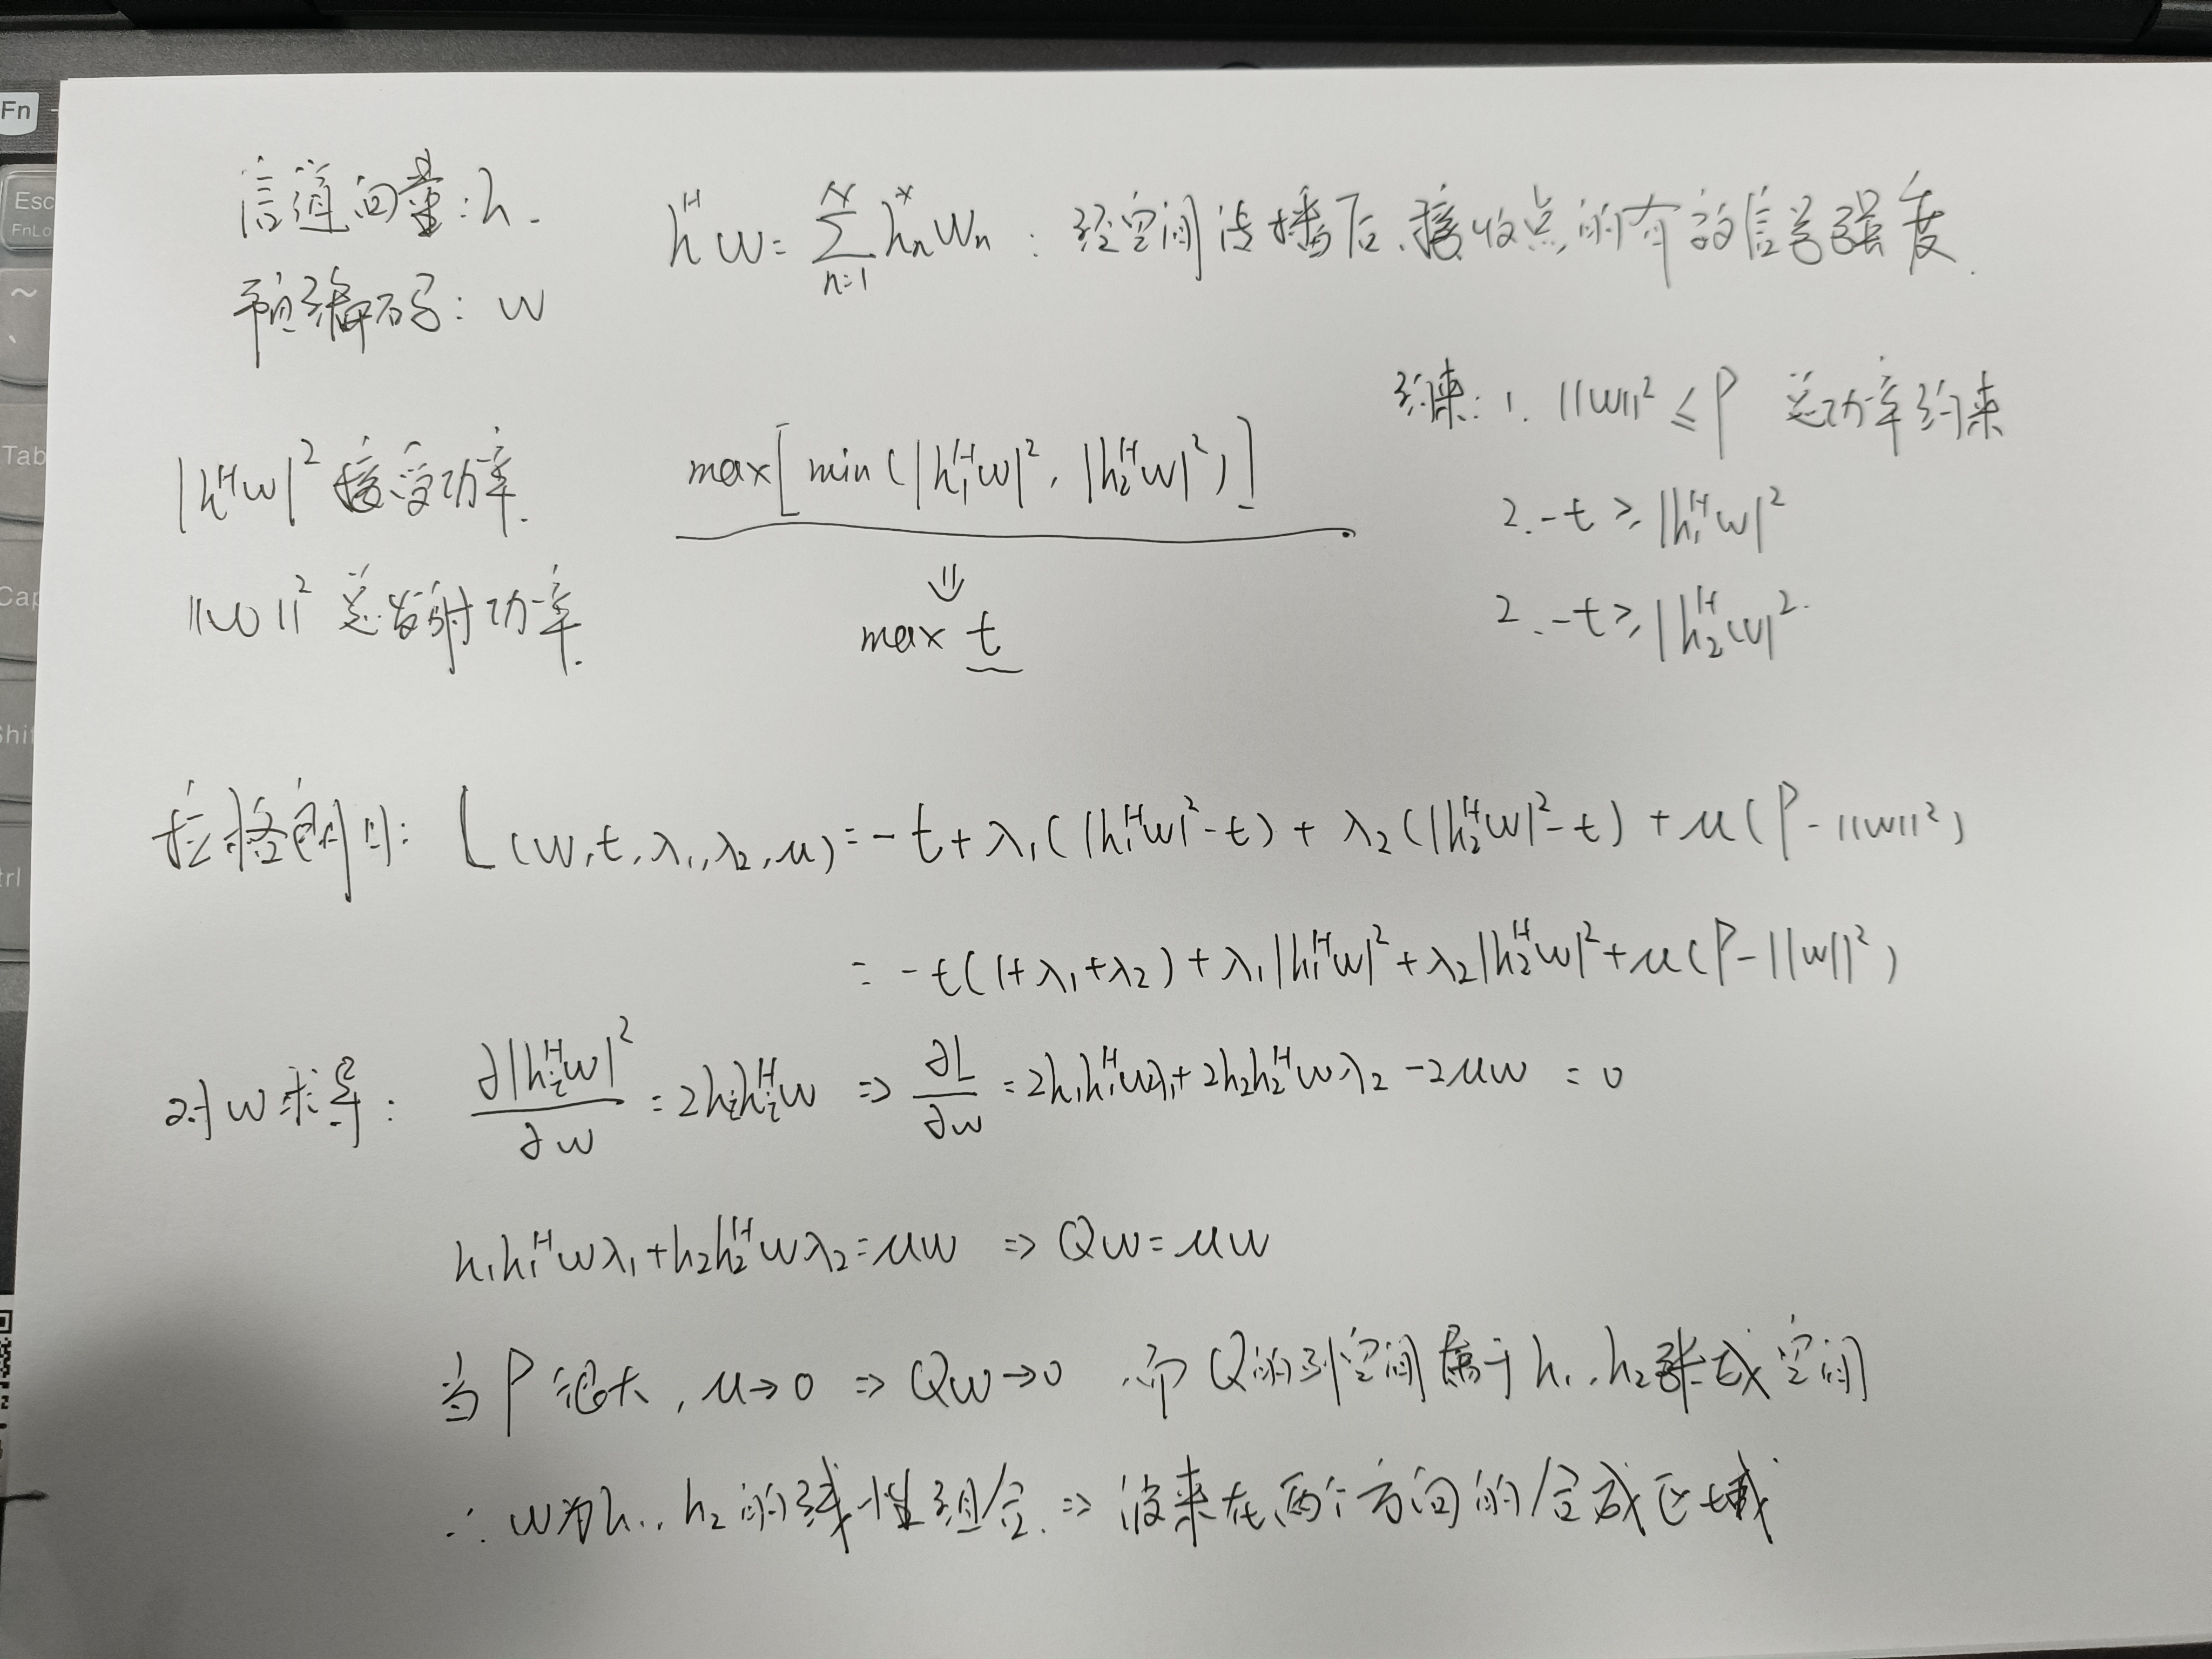 Fn
Esc
FnLo
~
`
Tab
Cap
Shif
trl
信道向量:h.
h^H w = ∑_{n=1}^{N} h_n^* w_n : 经空间传播后,接收点的有效信号强度.
预编码: w
约束: 1. ||w||² ≤ P 总功率约束
|h^H w|² 接受功率.
max[min(|h_1^H w|², |h_2^H w|²)]
2. -t ≥ |h_1^H w|²
||w||² 总发射功率.
⇓
max t
2. -t ≥ |h_2^H w|².
拉格朗日: L(w,t,λ_1,λ_2,μ) = -t + λ_1(|h_1^H w|² - t) + λ_2(|h_2^H w|² - t) + μ(P - ||w||²)
= -t(1+λ_1+λ_2) + λ_1|h_1^H w|² + λ_2|h_2^H w|² + μ(P - ||w||²)
对w求导: ∂|h_i^H w|²/∂w = 2h_i h_i^H w ⇒ ∂L/∂w = 2h_1h_1^H wλ_1 + 2h_2h_2^H wλ_2 - 2μw = 0
h_1h_1^H wλ_1 + h_2h_2^H wλ_2 = μw ⇒ Qw = μw
当P很大, μ→0 ⇒ Qw→0 ,而Q的列空间属于h_1, h_2张成空间
∴ w为h_1, h_2的线性组合. ⇒ 波束在两个方向的合成区域